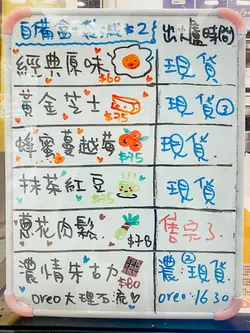 自備盒 現減$2 出爐時間
經典原味 $60 現貨
黃金芝士 $75 現貨③
蜂蜜蔓越莓 $75 現貨
抹茶紅豆 $75 現貨
蔥花肉鬆 $78 售完了
濃情朱古力 $80 濃:②現貨
oreo大理石流♡ oreo:1630